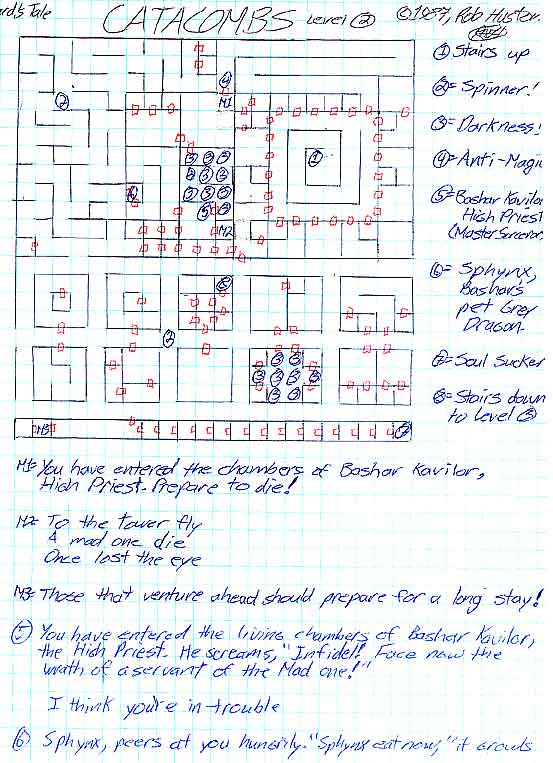 ard's Tale CATACOMBS Level ② ©1987, Rob Huster.
① Stairs up
②= Spinner!
③= Darkness!
④= Anti-Magic
⑤= Bashar Kavilor
High Priest
(Master Sorceror
⑥= Sphynx,
Bashar's
pet Grey
Dragon.
⑦= Soul Sucker
⑧= Stairs down
to Level ③
M1
M2
M3
M1= You have entered the chambers of Bashar Kavilor,
High Priest. Prepare to die!
M2= To the tower fly
A mad one die
Once lost the eye
M3= Those that venture ahead should prepare for a long stay!
⑤ You have entered the living chambers of Bashar Kavilor,
the High Priest. He screams, "Infidel! Face now the
wrath of a servant of the Mad one!"
I think you're in trouble
⑥ Sphynx, peers at you hungrily. "Sphynx eat now," it growls